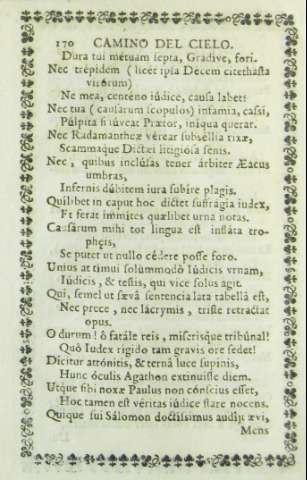 170 CAMINO DEL CIELO.
Dura tui métuam septa, Gradive, fori.
Nec trépidem (licèt ipsa Decem citethasta
virórum)
Ne mea, centéno iúdice, causa labet:
Nec tua (causarum scopulos) infamia, cassi,
Púlpita si iúveat Prætor, iníqua querar.
Nec Radamantheæ vérear subséllia rixæ,
Scammaque Dictæi litigiosa senis.
Nec, quibus inclúsas tener árbiter Æacus
umbras,
Infernis dúbitem iura subíre plagis.
Quílibet in caput hoc dictet suffragia iudex,
Et ferat immites quælibet urna notas.
Causárum mihi tot lingua est infláta tro-
phęis,
Se putet ut nullo cédere posse foro.
Unius at timui solummodò Iúdicis vrnam,
Iúdicis, & testis, qui vice solus agit.
Qui, semel ut sævâ sentencia lata tabellâ est,
Nec prece, nec lácrymis, triste retráctat
opus.
O durum! ô fatále reis, miserisque tribúnal!
Quò Iudex rigido tam gravis ore sedet!
Dícitur attónitis, & ternâ luce supinis,
Hunc óculis Agathon extinuisse diem.
Utque sibi noxæ Paulus non cónscius esset,
Hoc tamen est véritas iúdice stare nocens.
Quique sui Sálomon doctíssimus audijt ævi,
Mens